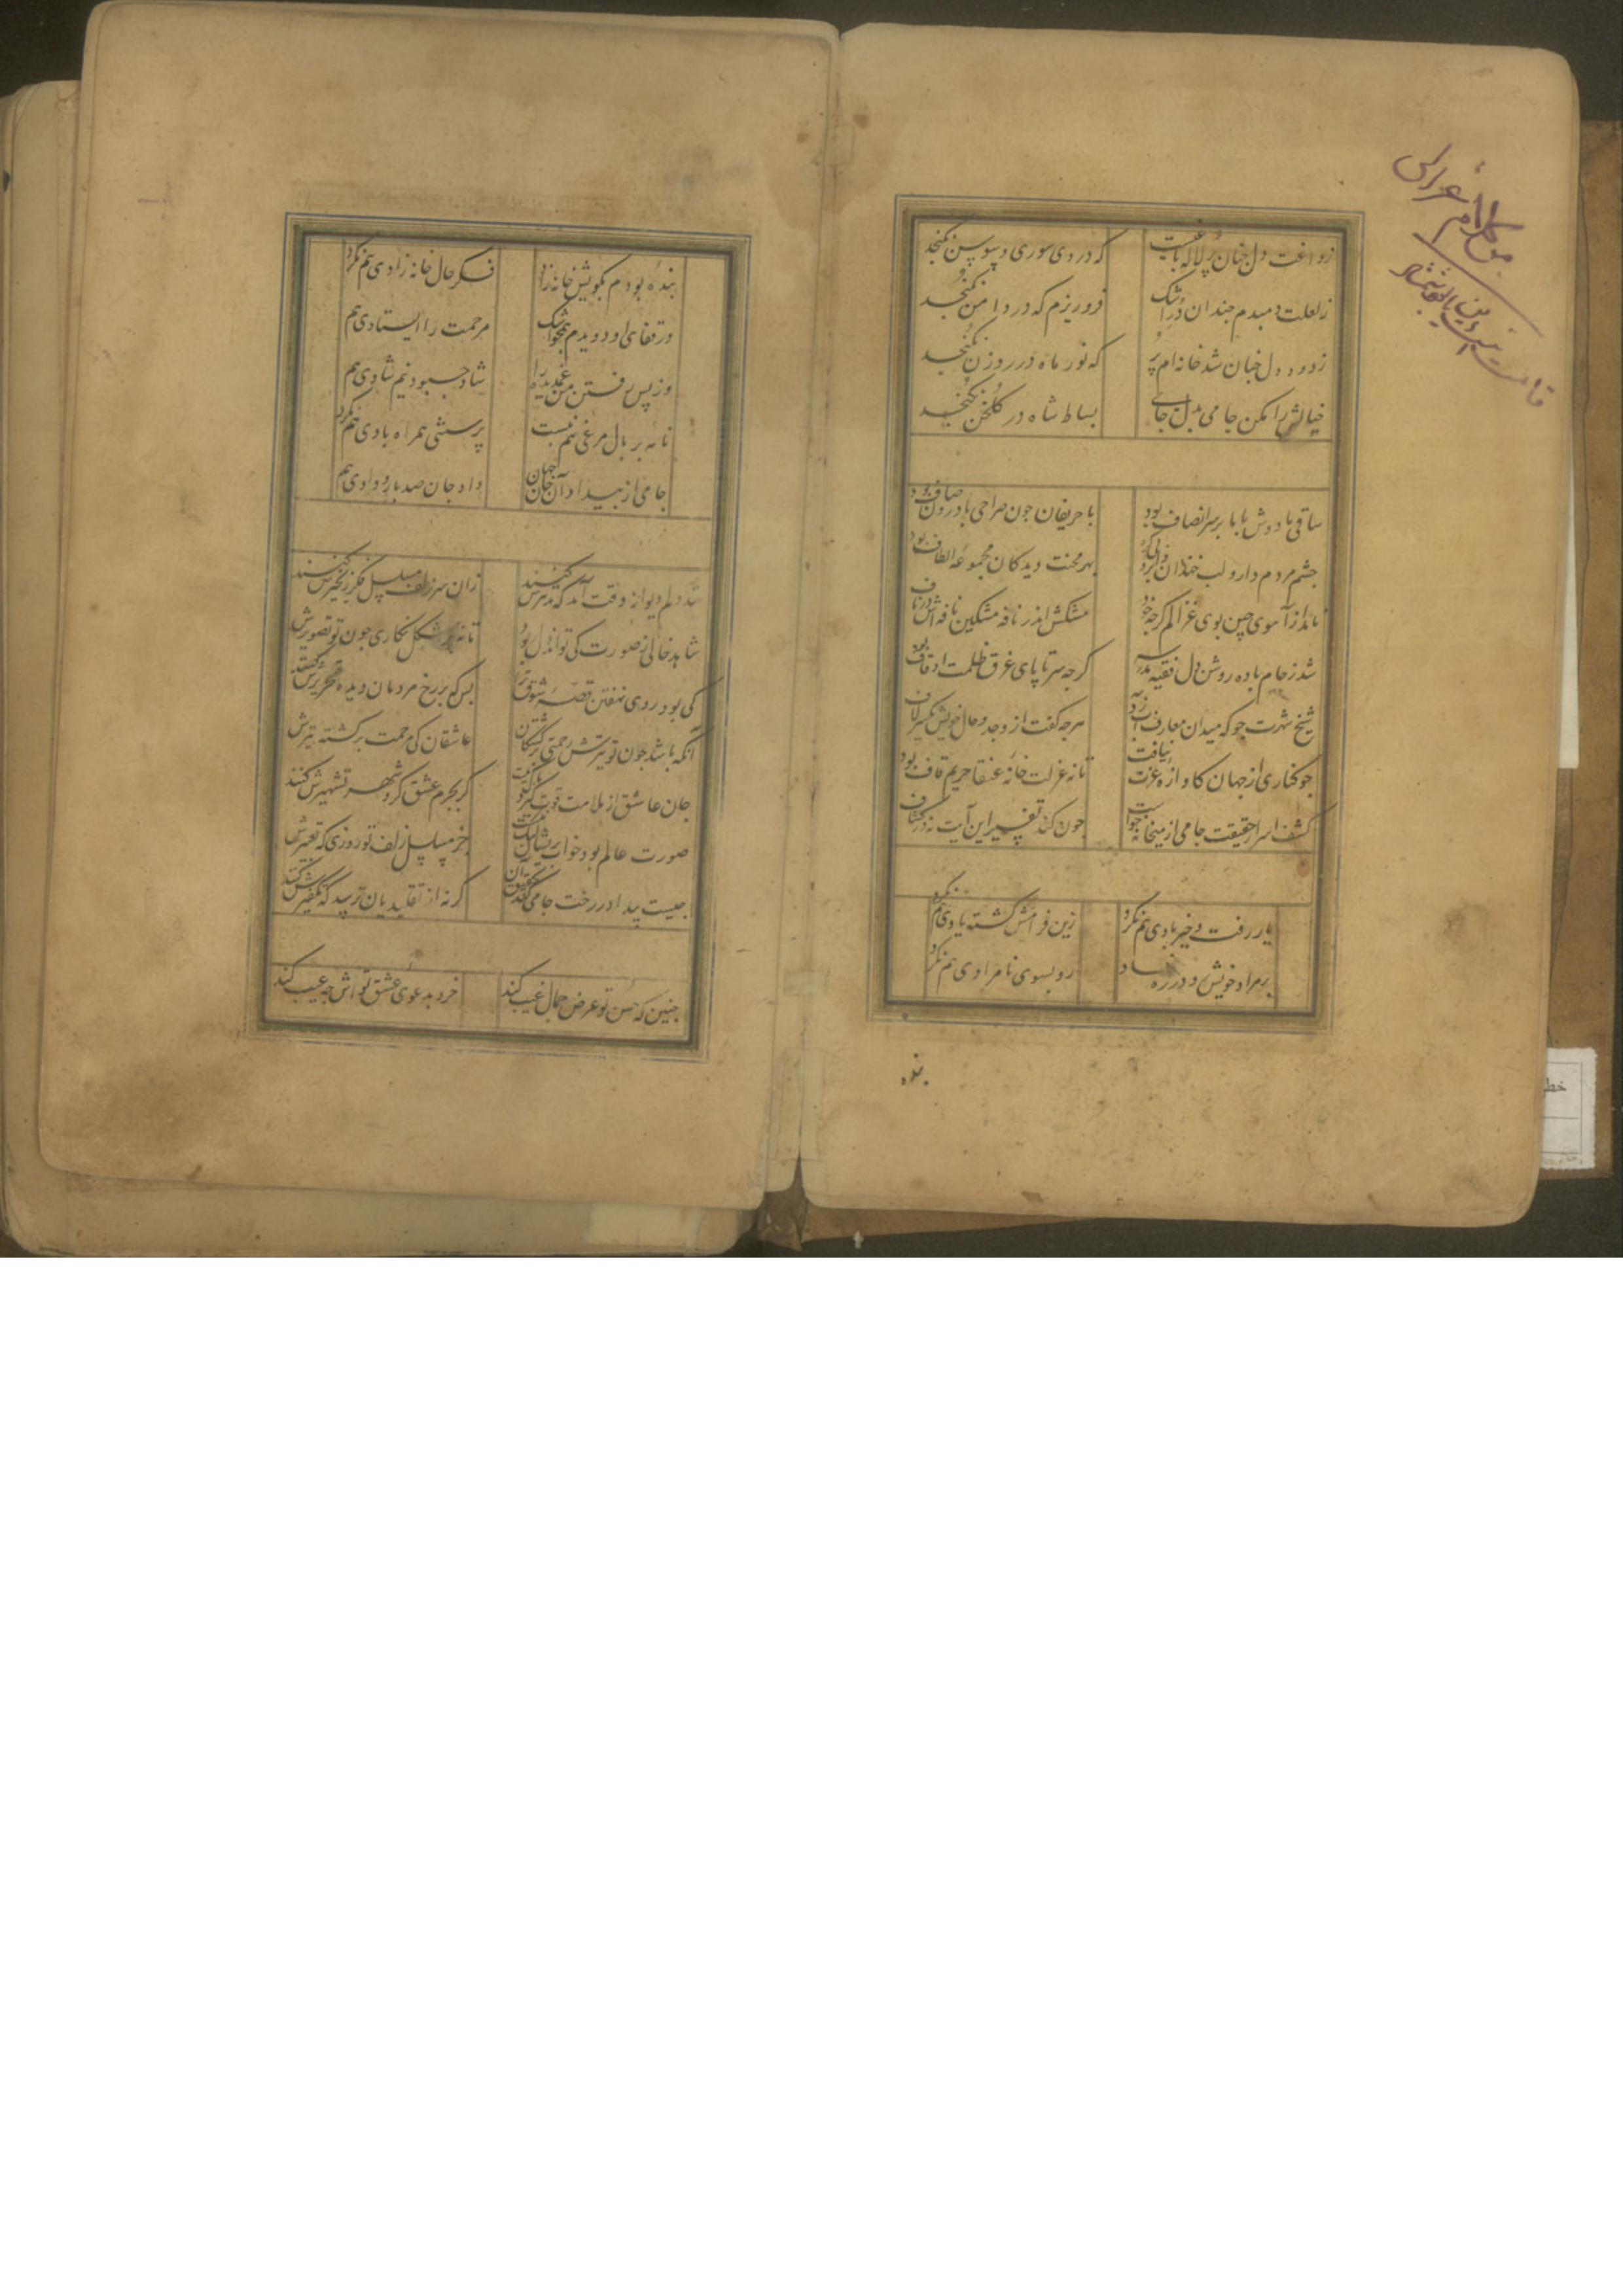 ز داغت دل چنان پر لاله باغیست
که در وی سوری و سوسن نگنجد
ز لعلت دمبدم چندان در اشک
فرو ریزم که در دامن نگنجد
ز دود دل چنان شد خانه ام پر
که نور ماه در روزن نگنجد
خیالش را مکن جامی بدل جای
بساط شاه در گلخن نگنجد
ساقی ما دوش با ما بر سر انصاف بود
با حریفان چون صراحی با درون صاف بود
چشم مردم دار و لب خندان
بهر محنت دیدکان مجموعه الطاف بود
ماند از آهوی چین بوی غزالم کرچه خود
مشکش اندر نافه مشکین نافه اش در ناف
شد ز جام باده روشن دل فقیه مدرسه
کرچه سر تا پای غرق ظلمت اوقاف بود
شیخ شهرت جو که میدان معارف
هرچه کفت از وجد و حال خویش یکسر لاف
جو کناری از جهان کاوازه عزت نیافت
تا نه عزلت خانه عنقا حریم قاف بود
کشف اسرار حقیقت جامی از میخانه جو
چون کند تفسیر این آیت نه در کشاف
یار رفت و خیربادی هم نکرد
زین فرامش کشته یادی هم نکرد
بر مراد خویش رو در ره نهاد
رو بسوی نامرادی هم نکرد
بنده
بنده بودم بکویش خانه زاد
فکر حال خانه زادی هم نکرد
در قفای او دویدم همچو اشک
مرحمت را ایستادی هم
وز پس رفتن من غمدیده را
شاد
نامه بر بال مرغی هم نبست
پرسشی همراه بادی هم نکرد
جامی از بیداد آن جان جهان
داد جان صد بار و دادی هم
شد دلم دیوانه وقت آمد که تدبیرش کنند
زان سر زلف مسلسل فکر زنجیرش کنند
شاهد خالی ز صورت کی تواند دل
تا نه بر شکل نکاری چون تو تصویرش
کی بود روی نهفتن قصه شوق ترا
بس که بر رخ مردمان دیده تحریرش کنند
آنکه باشد چون تو تیرش رحمتی بر کشتکان
عاشقان کی مرحمت بر کشته تیرش
جان عاشق از ملامت
کر بجرم عشق کرد شهر تشهیرش کنند
صورت عالم بود خواب پریشان
جز مسلسل زلف تو روزی که تعبیرش
چیست
کر نه از تقلیدیان ترسد که تکفیرش کنند
چنین که حسن تو عرض جمال غیب کند
خرد بدعوی عشق تو اش چه عیب کند